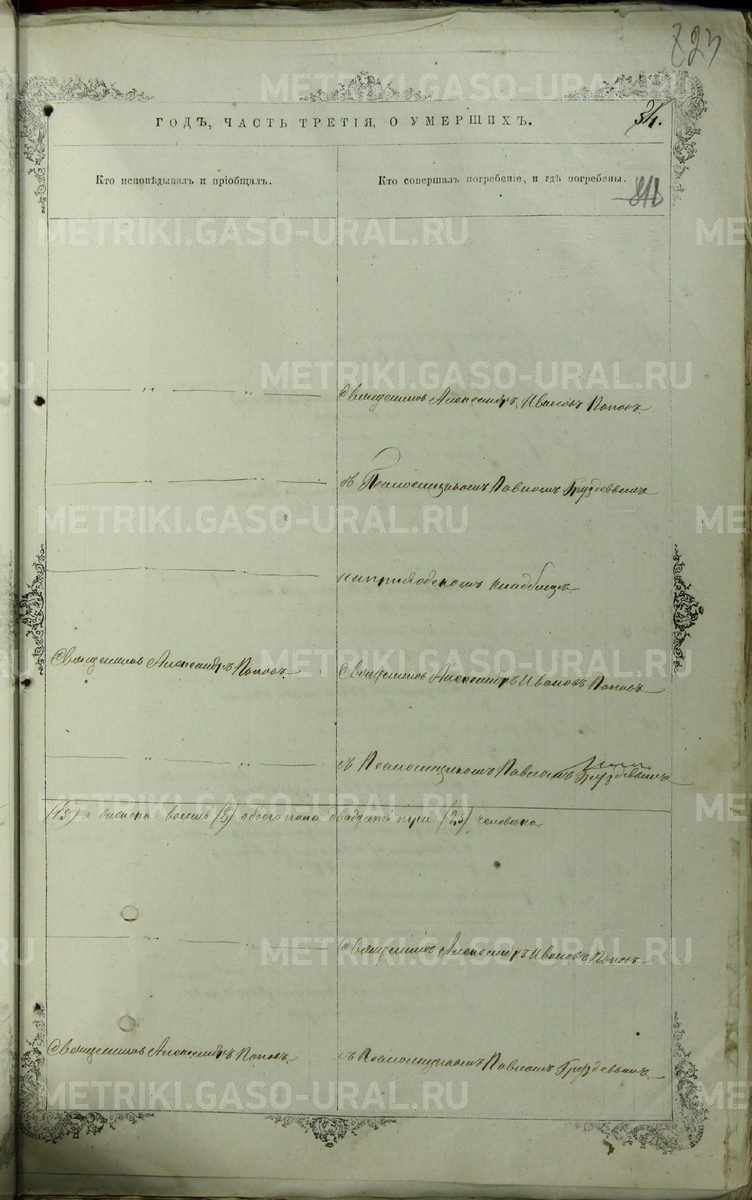 823
ГОДЪ, ЧАСТЬ ТРЕТІЯ, О УМЕРШИХЪ.
34.
Кто исповѣдывалъ и пріобщалъ.
Кто совершалъ погребеніе, и гдѣ погребены.
Священникъ Александръ Ивановъ Поповъ
съ Псаломщикомъ Павломъ Груздевымъ
на приходскомъ кладбищѣ
Священникъ Александръ Поповъ.
Священникъ Александръ Ивановъ Поповъ
съ Псаломщикомъ Павломъ Груздевымъ
(15) а женска восемь (8) обоего пола двадцать три (23) человѣка
Священникъ Александръ Ивановъ Поповъ
Священникъ Александръ Поповъ.
съ Псаломщикомъ Павломъ Груздевымъ.
METRIKI.GASO-URAL.RU